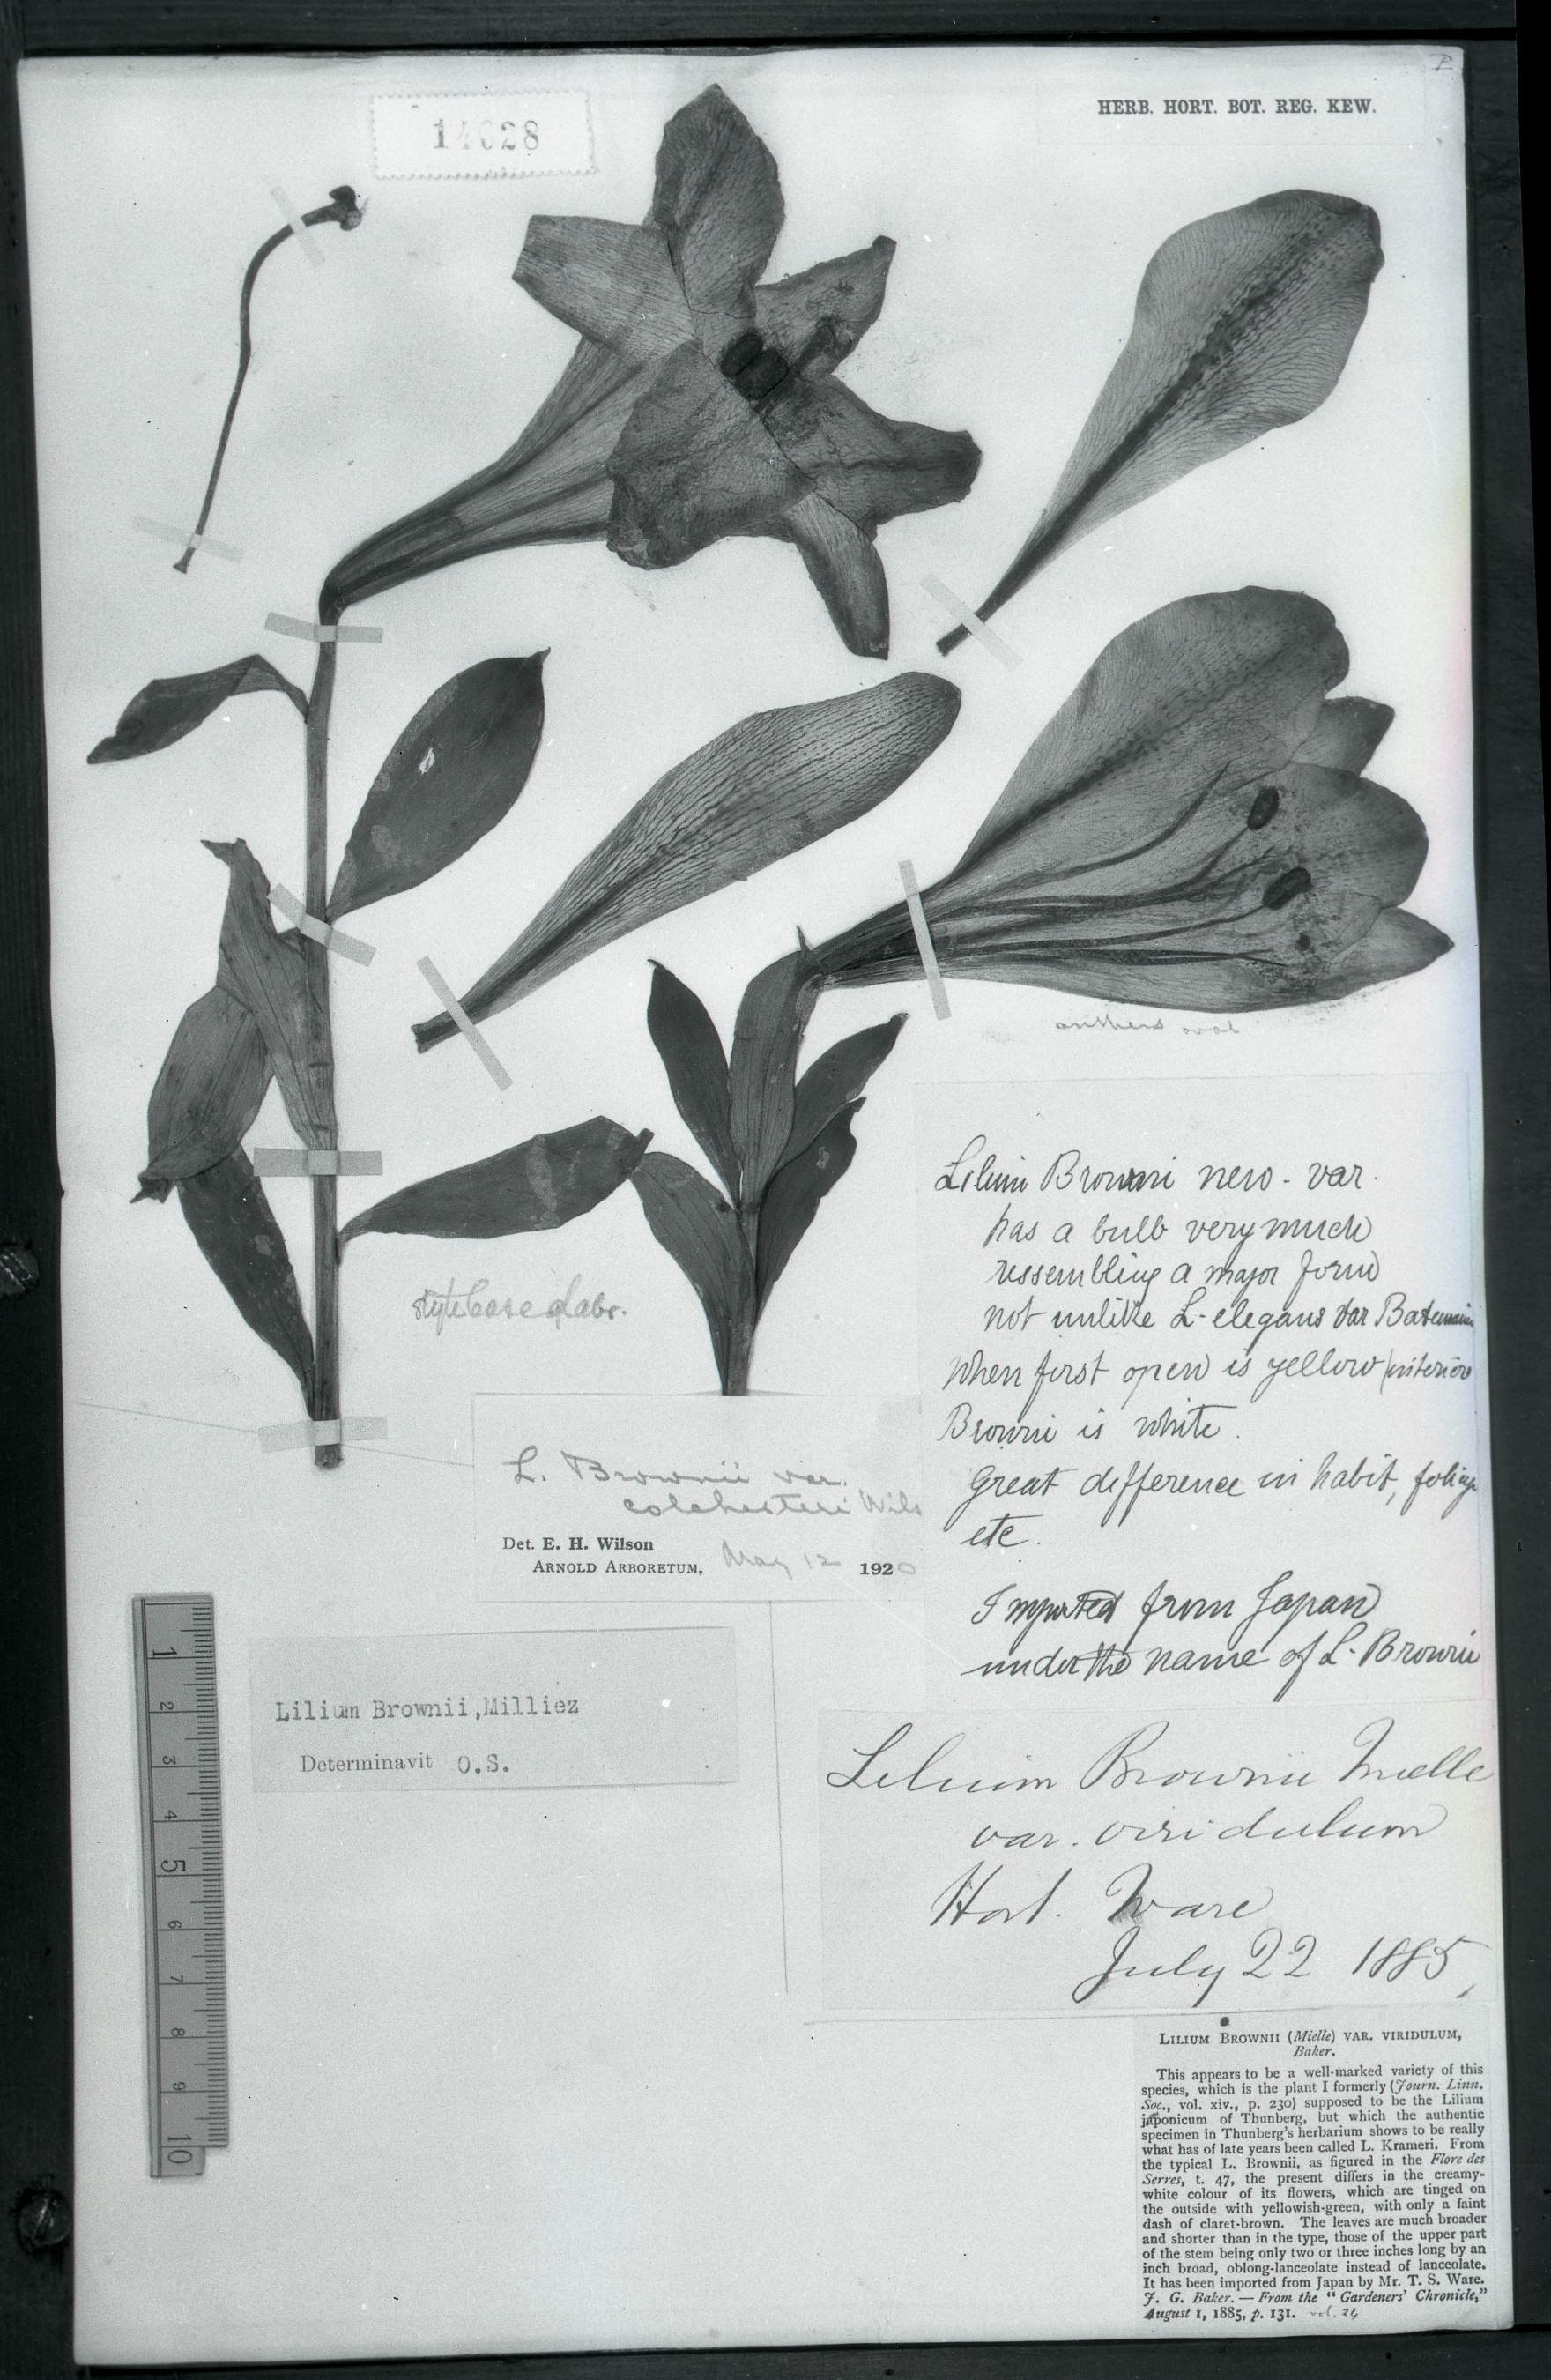 HERB. HORT. BOT. REG. KEW.
14628
anthers oval
Lilium Browni new - var.
has a bulb very much
ressembling a major form
not unlike L- elegans var
When first open is yellow (interior
Browni is white.
Great difference in habit, foliage
etc.
Imported from Japan
under the name of L. Browni
style base glabr.
L. Brownii var.
colchesteri Wils
Det. E. H. Wilson
ARNOLD ARBORETUM, May 12 1920
1
2
3
4
5
6
7
8
9
10
Lilium Brownii,Milliez
Determinavit O.S.
Lilium Brownii Mielle
var. viridulum
Hort. Ware
July 22 1885,
LILIUM BROWNII (Mielle) VAR. VIRIDULUM,
Baker.
This appears to be a well-marked variety of this
species, which is the plant I formerly (Journ. Linn.
Soc., vol. xiv., p. 230) supposed to be the Lilium
japonicum of Thunberg, but which the authentic
specimen in Thunberg's herbarium shows to be really
what has of late years been called L. Krameri. From
the typical L. Brownii, as figured in the Flore des
Serres, t. 47, the present differs in the creamy-
white colour of its flowers, which are tinged on
the outside with yellowish-green, with only a faint
dash of claret-brown. The leaves are much broader
and shorter than in the type, those of the upper part
of the stem being only two or three inches long by an
inch broad, oblong-lanceolate instead of lanceolate.
It has been imported from Japan by Mr. T. S. Ware.
J. G. Baker. — From the "Gardeners' Chronicle,"
August 1, 1885, p. 131. vol. 24